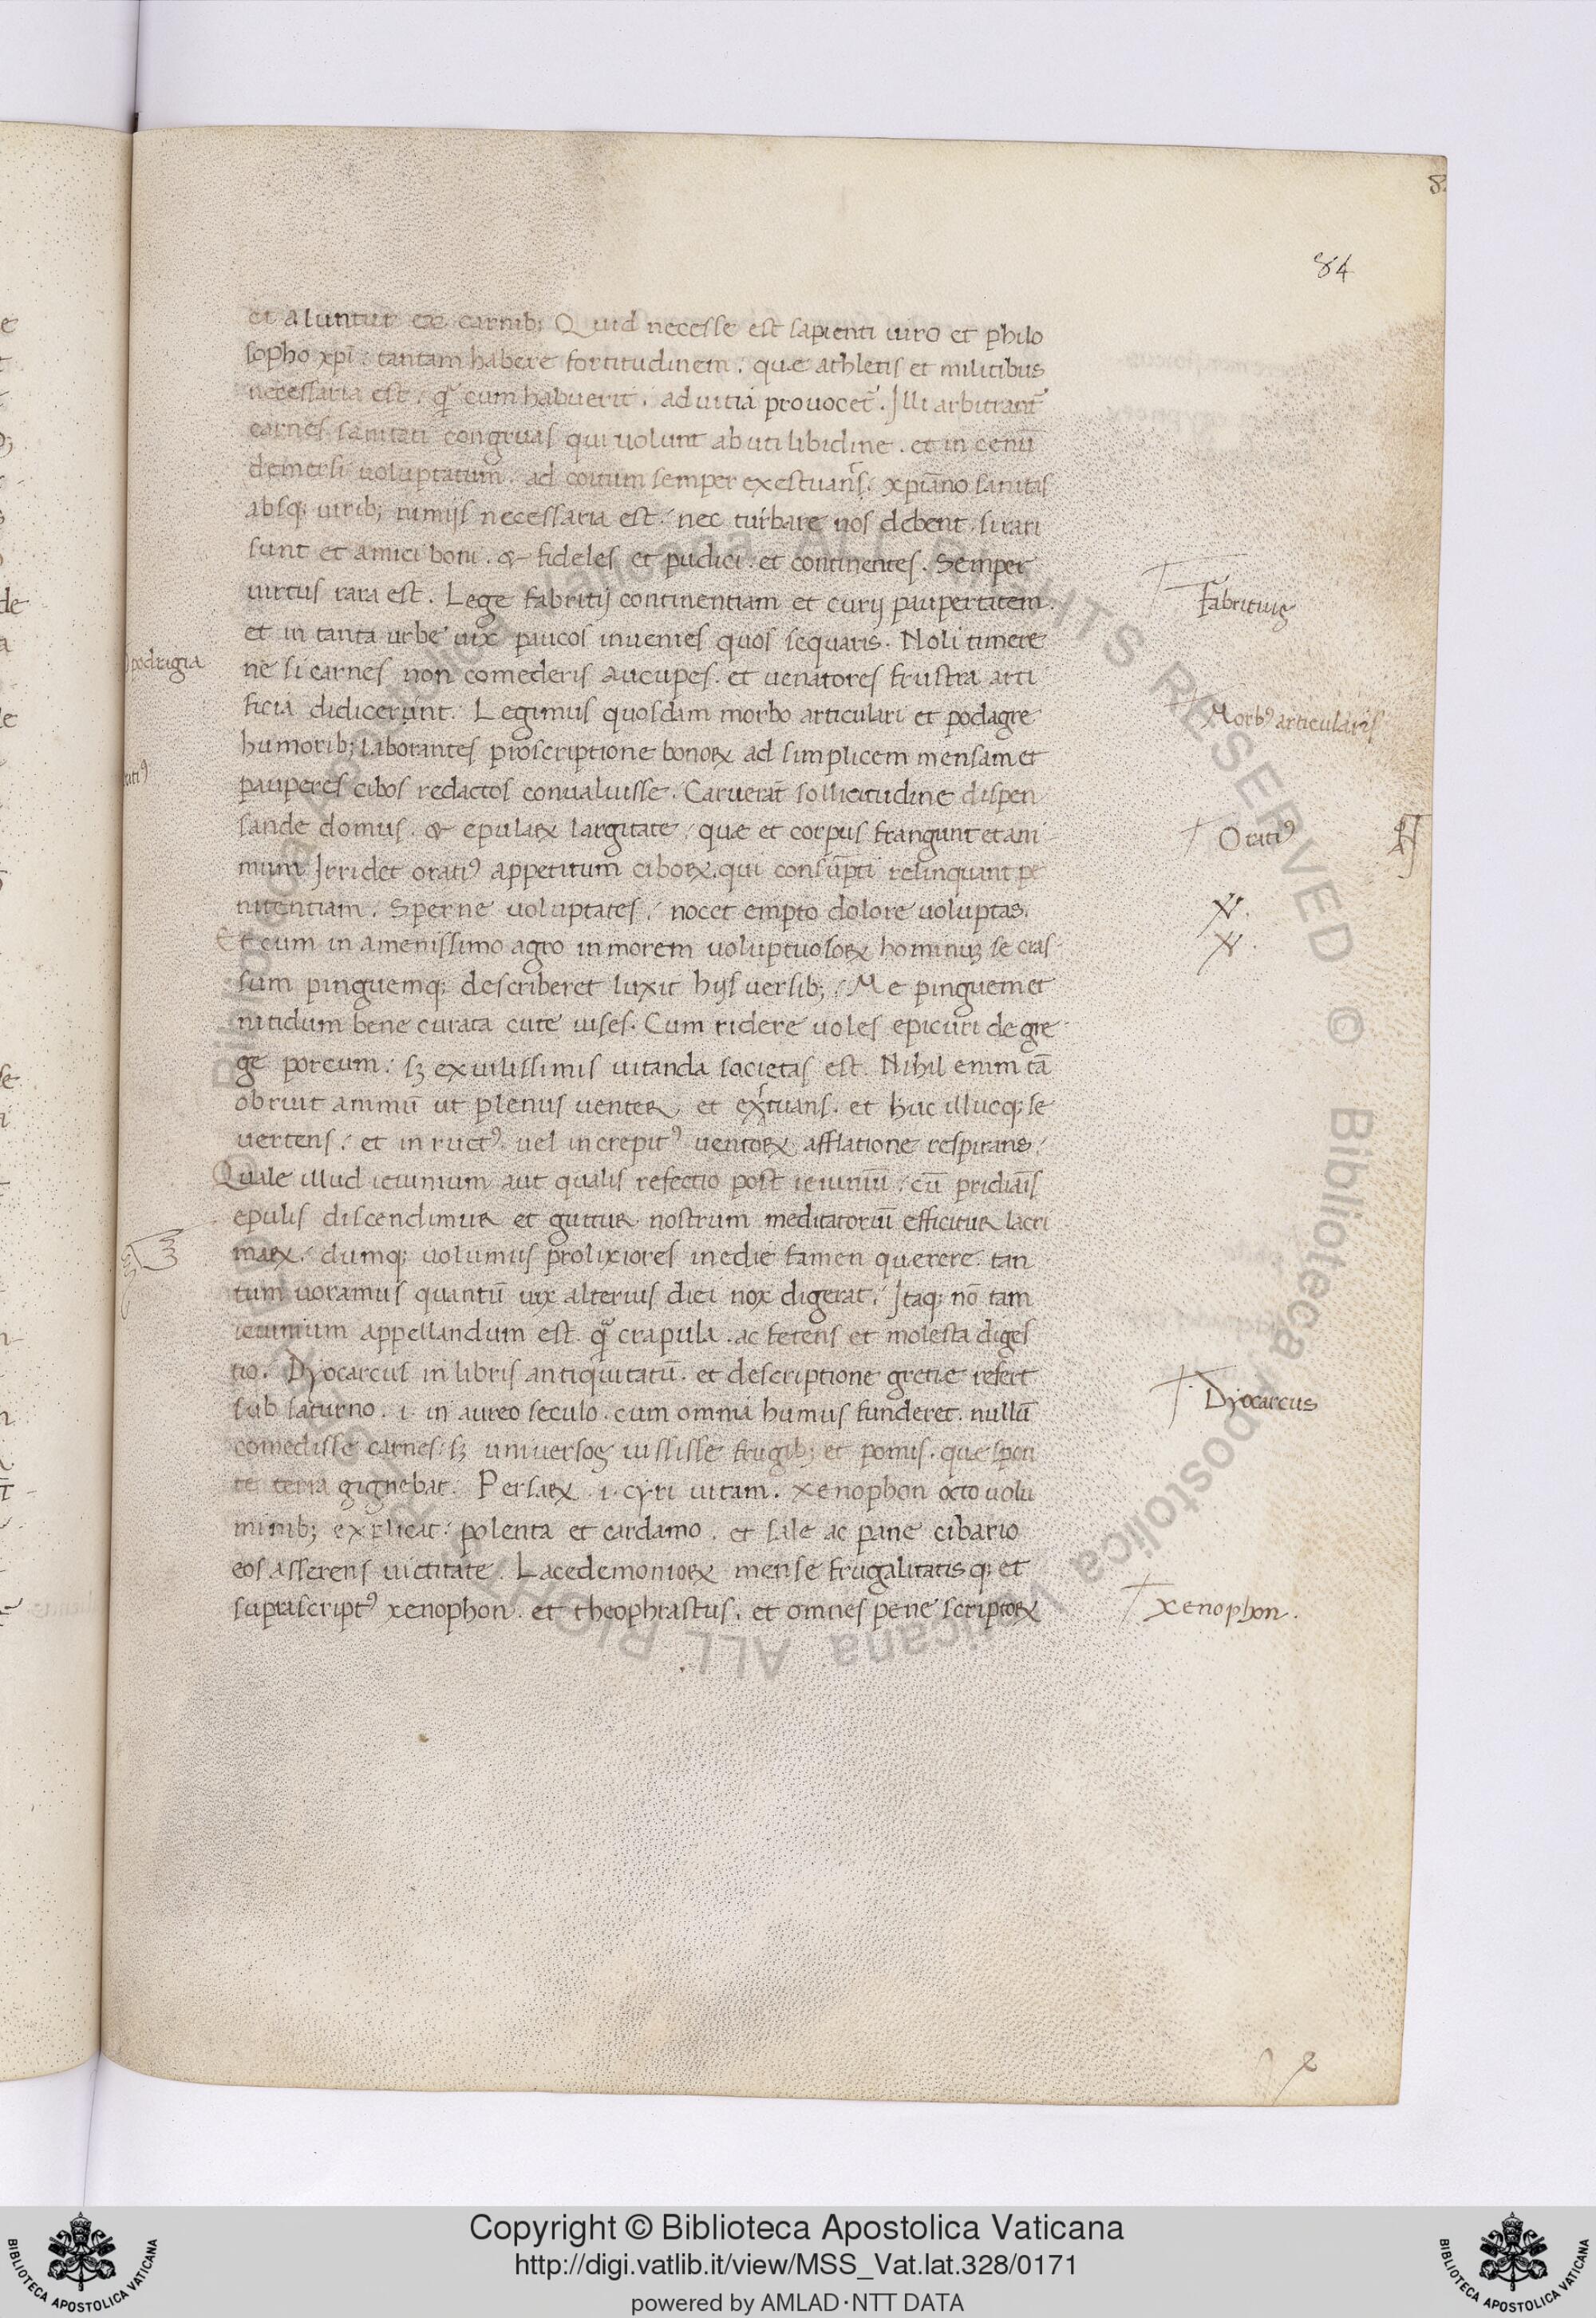 84
et aluntur ex carnib; Quid necesse est sapienti uiro et philo
sopho xpĩ: tantam habere fortitudinem. que athletis et militibus
necessaria est. q̃ cum habuerit. ad uitia prouocet᷑. Illi arbitrant᷑
carnes sanitati congruas qui uolunt abuti libidine. et in cenū
demersi uoluptatum. ad coitum semper exestuans. xpiāno sanitas
absq; uirib; nimijs necessaria est. nec turbare nos debent. si rari
sunt et amici boni. & fideles et pudici. et continentes. Semper
uirtus rara est. Lege fabritij continentiam et curij paupertatem.
et in tanta urbe uix paucos inuenies quos sequaris. Noli timere
ne si carnes non comederis aucupes. et uenatores frustra arti
ficia didicerunt. Legimus quosdam morbo articulari et podagre
humorib; laborantes proscriptione bonoꝝ ad simplicem mensam et
pauperes cibos redactos conualuisse. Caruerāt sollicitudine dispen
sande domus. & epulaꝝ largitate. que et corpus frangunt et ani
mum Irridet oratiꝰ appetitum ciboꝝ. qui consūpti relinquant pe
nitentiam. Sperne uoluptates. nocet empto dolore uoluptas.
Et cum in amenissimo agro in morem uoluptuosoꝝ hominuꝫ se cras
sum pinguemq; describeret luxit hijs uersib;. Me pinguem et
nitidum bene curata cute uises. Cum ridere uoles epicuri de gre
ge porcum. sꝫ ex uilissimis uitanda societas est. Nihil enim tā
obruit animū ut plenus uenter. et extuans. et huc illucq; se
uertens. et in ructꝰ. uel in crepitꝰ uentoꝝ afflatione respirans.
Quale illud ieiunium aut qualis refectio post ieiuniū. cū pridiāis
epulis discendimur et guttur nostrum meditatoriū efficitur lacri
maꝝ. dumq; uolumus prolixiores inedie famen querere. tan
tum uoramus quantū uix alterius diei nox digerat. Itaq; nō tam
ieiunium appellandum est. q̃ crapula. ac fetens et molesta diges
tio. Dyocarcus in libris antiquitatū. et descriptione gretie refert
sub saturno. i. in aureo seculo. cum omnia humus funderet. nullū
comedisse carnes. sꝫ uniuersos uississe frugib; et pomis. que spon
te terra gignebat. Persaꝝ. i. cyri uitam. xenophon octo uolu
minib; explicat. polenta et cardamo. et sale ac pane cibario
eos asserens uictitate. Lacedemonioꝝ mense frugalitatis q; et
suprascriptꝰ xenophon. et theophrastus. et omnes pene scriptoꝝ
Fabritius
podragia
Morbꝰ articularis
Oratiꝰ
Dyocarcus
xenophon.
Copyright © Biblioteca Apostolica Vaticana
http://digi.vatlib.it/view/MSS_Vat.lat.328/0171
powered by AMLAD·NTT DATA
BIBLIOTECA APOSTOLICA VATICANA
BIBLIOTECA APOSTOLICA VATICANA
Biblioteca Apostolica Vaticana ALL RIGHTS RESERVED © Biblioteca Apostolica Vaticana ALL RIGHTS RESERVED ©